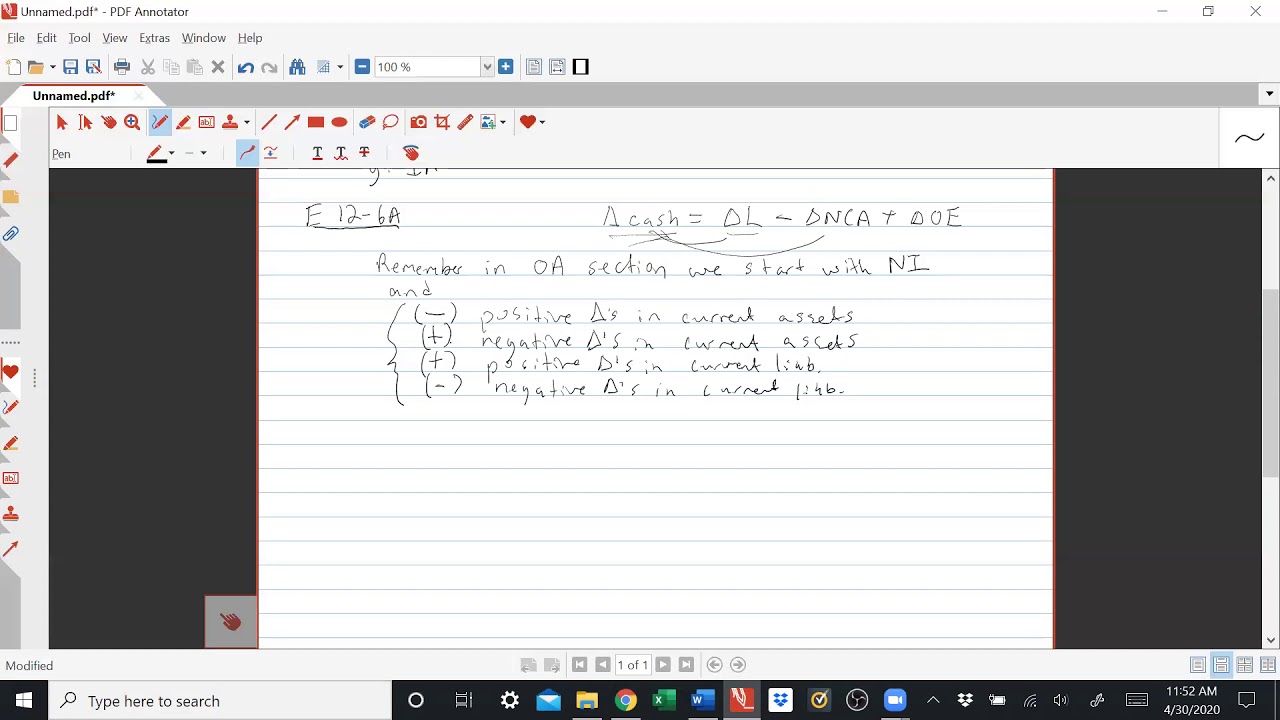 Unnamed.pdf* - PDF Annotator
File Edit Tool View Extras Window Help
100 %
Unnamed.pdf*
Pen
E 12-6A
Δ cash = ΔL - ΔNCA + ΔOE
Remember in OA section we start with NI
and
(-) positive Δ's in current assets
(+) negative Δ's in current assets
(+) positive Δ's in current liab.
(-) negative Δ's in current liab.
Modified
1 of 1
Type here to search
11:52 AM
4/30/2020